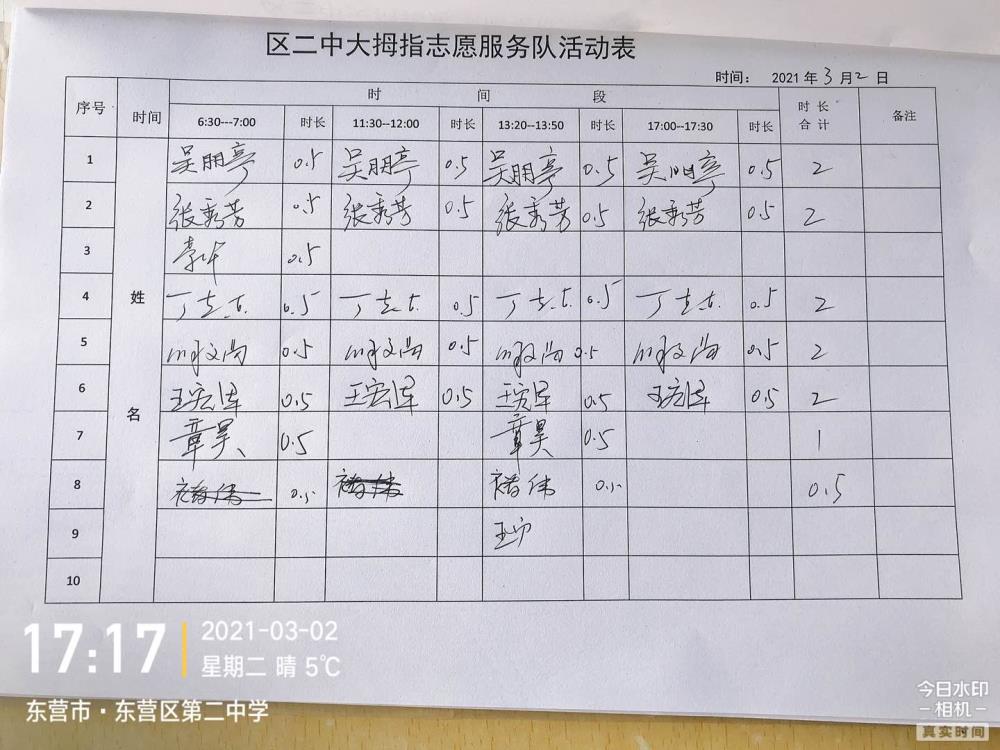 区二中大拇指志愿服务队活动表
时间： 2021 年 3 月 2 日
序号 时间 时 间 段 时 长 合 计 备注
6:30---7:00 时长 11:30--12:00 时长 13:20--13:50 时长 17:00--17:30 时长
姓 名
1 吴朋亭 0.5 吴朋亭 0.5 吴朋亭 0.5 吴朋亭 0.5 2
2 张秀芳 0.5 张秀芳 0.5 张秀芳 0.5 张秀芳 0.5 2
3 李华 0.5
4 丁志杰 0.5 丁志杰 0.5 丁志杰 0.5 丁志杰 0.5 2
5 0.5 0.5 0.5 0.5 2
6 王宏军 0.5 王宏军 0.5 王宏军 0.5 王宏军 0.5 2
7 章昊 0.5 章昊 0.5 1
8 褚伟 0.5 褚伟 褚伟 0.5 0.5
9
10
17:17
2021-03-02
星期二 晴 5℃
东营市·东营区第二中学
今日水印
-相机-
真实时间